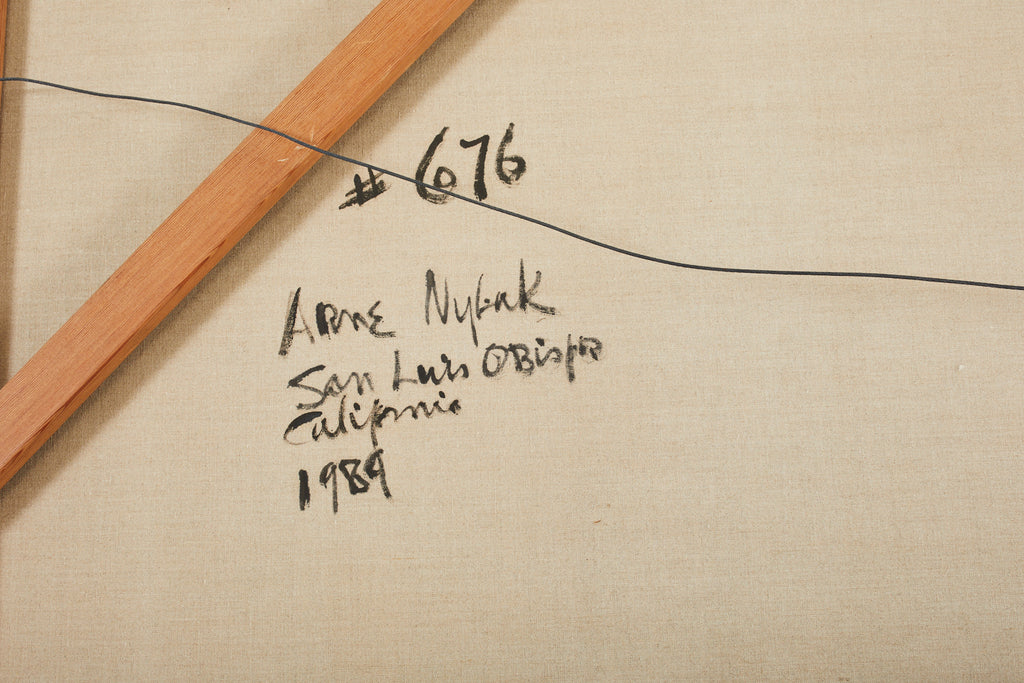 # 676
Arne Nybak
San Luis Obispo
California
1989